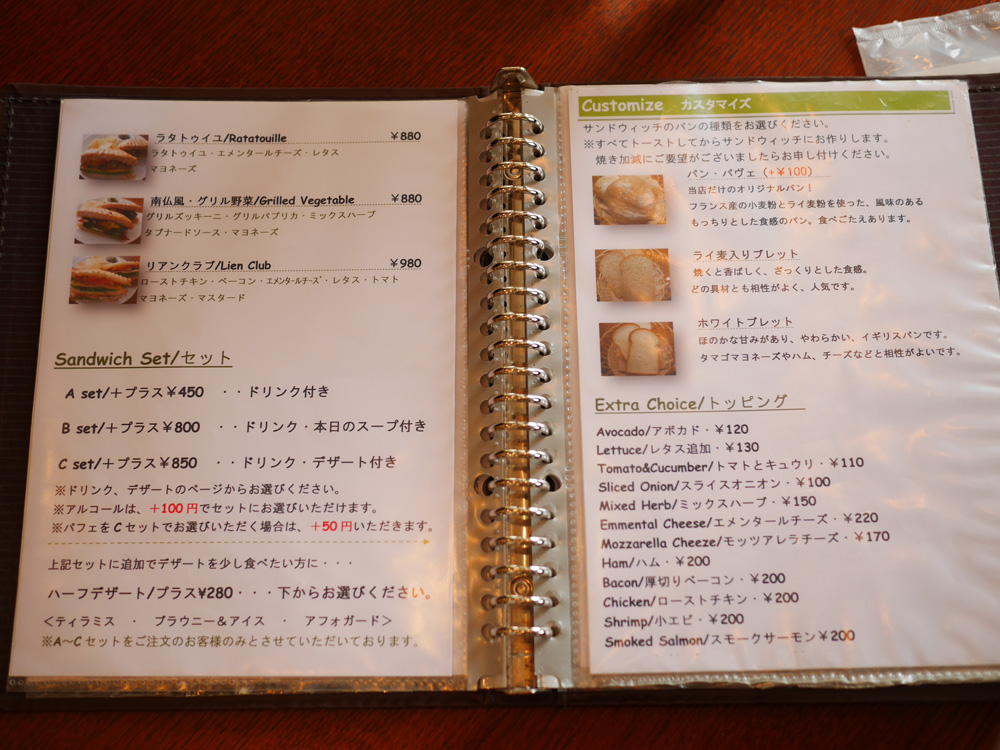 ラタトゥイユ/Ratatouille ￥880
ラタトゥイユ・エメンタールチーズ・レタス
マヨネーズ
南仏風・グリル野菜/Grilled Vegetable ￥880
グリルズッキーニ・グリルパプリカ・ミックスハーブ
タプナードソース・マヨネーズ
リアンクラブ/Lien Club ￥980
ローストチキン・ベーコン・エメンタールチーズ・レタス・トマト
マヨネーズ・マスタード
Sandwich Set/セット
A set/＋プラス￥450 ・・ドリンク付き
B set/＋プラス￥800 ・・ドリンク・本日のスープ付き
C set/＋プラス￥850 ・・ドリンク・デザート付き
※ドリンク、デザートのページからお選びください。
※アルコールは、＋100円でセットにお選びいただけます。
※パフェをCセットでお選びいただく場合は、＋50円いただきます。
上記セットに追加でデザートを少し食べたい方に・・・
ハーフデザート/プラス¥280・・・下からお選びください。
＜ティラミス ・ ブラウニー＆アイス ・ アフォガード＞
※A～Cセットをご注文のお客様のみとさせていただいております。
Customize カスタマイズ
サンドウィッチのパンの種類をお選びください。
※すべてトーストしてからサンドウィッチにお作りします。
焼き加減にご要望がございましたらお申し付けください。
パン・パヴェ（+￥100）
当店だけのオリジナルパン！
フランス産の小麦粉とライ麦粉を使った、風味のある
もっちりとした食感のパン。食べごたえあります。
ライ麦入りブレット
焼くと香ばしく、ざっくりとした食感。
どの具材とも相性がよく、人気です。
ホワイトブレット
ほのかな甘みがあり、やわらかい、イギリスパンです。
タマゴマヨネーズやハム、チーズなどと相性がよいです。
Extra Choice/トッピング
Avocado/アボカド・￥120
Lettuce/レタス追加・￥130
Tomato&Cucumber/トマトとキュウリ・￥110
Sliced Onion/スライスオニオン・￥100
Mixed Herb/ミックスハーブ・￥150
Emmental Cheese/エメンタールチーズ・￥220
Mozzarella Cheeze/モッツアレラチーズ・￥170
Ham/ハム・￥200
Bacon/厚切りベーコン・￥200
Chicken/ローストチキン・￥200
Shrimp/小エビ・￥200
Smoked Salmon/スモークサーモン￥200